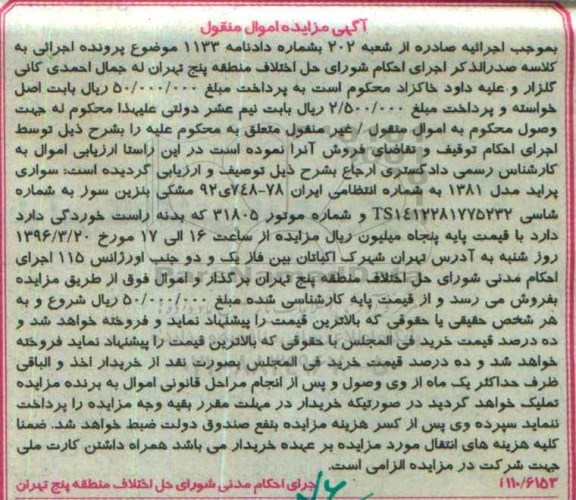 آگهی مزایده اموال منقول
بموجب اجرائیه صادره از شعبه ۲۰۲ بشماره دادنامه ۱۱۳۳ موضوع پرونده اجرائی به
کلاسه صدرالذکر اجرای احکام شورای حل اختلاف منطقه پنج تهران له جمال احمدی کانی
گلزار و علیه داود خاکزاد محکوم است به پرداخت مبلغ ۵۰/۰۰۰/۰۰۰ ریال بابت اصل
خواسته و پرداخت مبلغ ۲/۵۰۰/۰۰۰ ریال بابت نیم عشر دولتی علیهذا محکوم له جهت
وصول محکوم به اموال منقول / غیر منقول متعلق به محکوم علیه را بشرح ذیل توسط
اجرای احکام توقیف و تقاضای فروش آنرا نموده است در این راستا ارزیابی اموال به
کارشناس رسمی دادگستری ارجاع بشرح ذیل توصیف و ارزیابی گردیده است: سواری
پراید مدل ۱۳۸۱ به شماره انتظامی ایران ۷۸-۷۴۸ی۹۲ مشکی بنزین سوز به شماره
شاسی TS۱٤۱۲۲۸۱۷۷۵۲۳۲ و شماره موتور ۳۱۸۰۵ که بدنه راست خوردگی دارد
دارد با قیمت پایه پنجاه میلیون ریال مزایده از ساعت ۱۶ الی ۱۷ مورخ ۱۳۹۶/۳/۲۰
روز شنبه به آدرس تهران شهرک اکباتان بین فاز یک و دو جنب اورژانس ۱۱۵ اجرای
احکام مدنی شورای حل اختلاف منطقه پنج تهران برگذار و اموال فوق از طریق مزایده
بفروش می رسد و از قیمت پایه کارشناسی شده مبلغ ۵۰/۰۰۰/۰۰۰ ریال شروع و به
هر شخص حقیقی یا حقوقی که بالاترین قیمت را پیشنهاد نماید و فروخته خواهد شد و
ده درصد قیمت خرید فی المجلس با حقوقی که بالاترین قیمت را پیشنهاد نماید فروخته
خواهد شد و ده درصد قیمت خرید فی المجلس بصورت نقد از خریدار اخذ و الباقی
ظرف حداکثر یک ماه از وی وصول و پس از انجام مراحل قانونی اموال به برنده مزایده
تملیک خواهد گردید در صورتیکه خریدار در مهلت مقرر بقیه وجه مزایده را پرداخت
ننماید سپرده وی پس از کسر هزینه مزایده بنفع صندوق دولت ضبط خواهد شد. ضمنا
کلیه هزینه های انتقال مورد مزایده بر عهده خریدار می باشد همراه داشتن کارت ملی
جهت شرکت در مزایده الزامی است.
۱۱۰/۶۱۵۳ا اجرای احکام مدنی شورای حل اختلاف منطقه پنج تهران